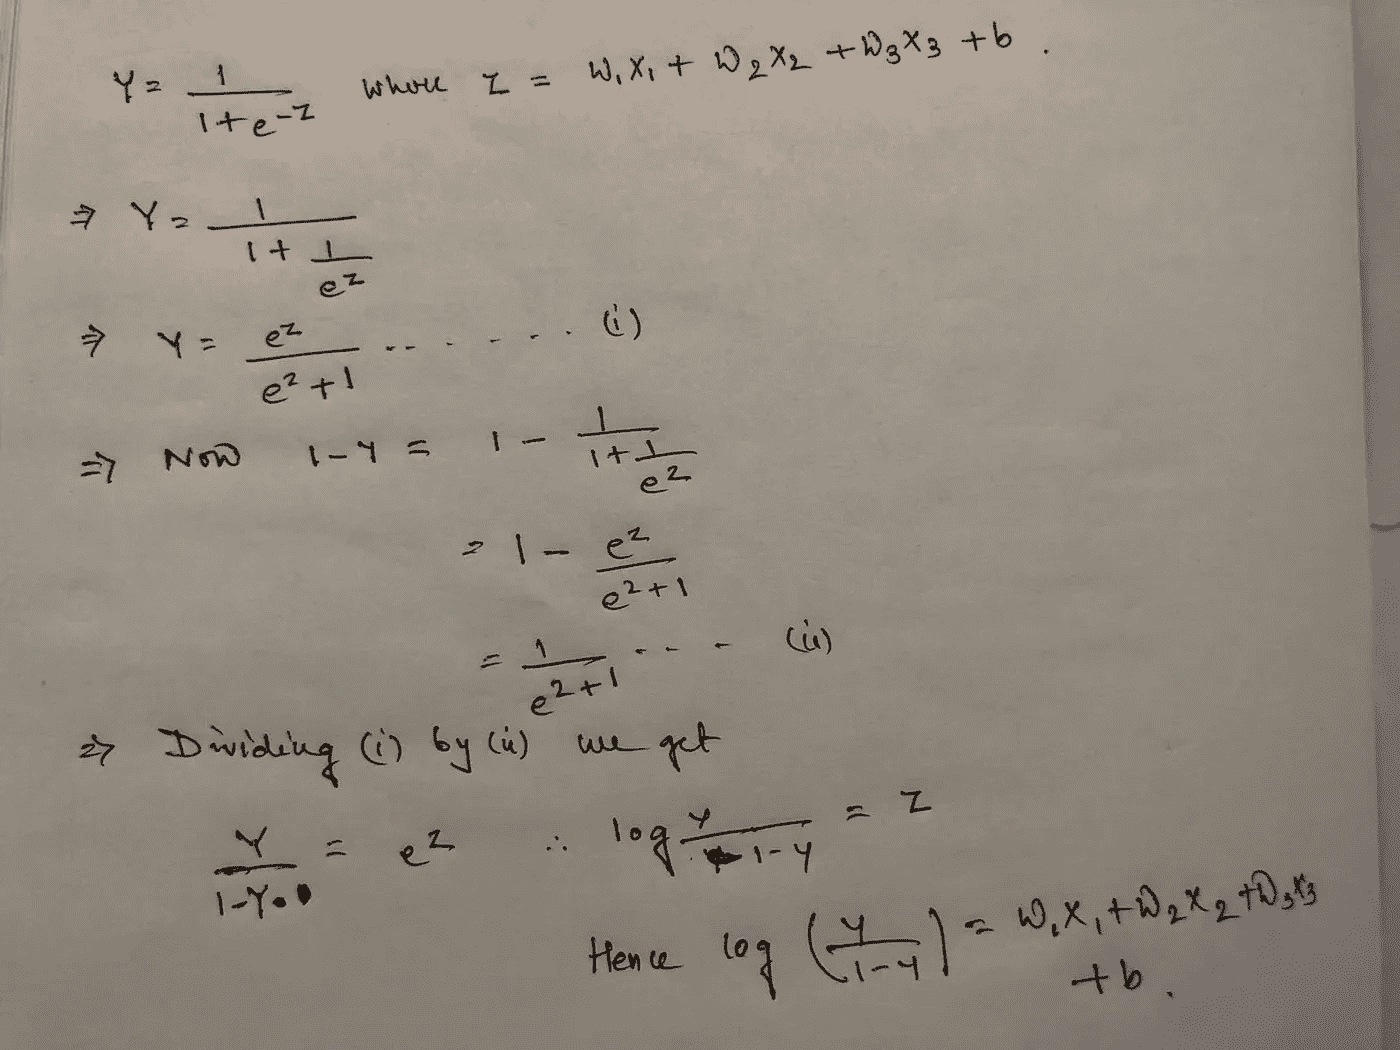 Y = 1/(1+e^-z) where z = w₁x₁ + w₂x₂ + w₃x₃ + b .
⇒ Y = 1/(1 + 1/e^z)
⇒ Y = e^z/(e^z+1) ........ (i)
⇒ Now 1-Y = 1 - 1/(1+1/e^z)
= 1 - e^z/(e^z+1)
= 1/(e^z+1) .... (ii)
⇒ Dividing (i) by (ii) we get
Y/(1-Y) = e^z ∴ log Y/(1-Y) = z
Hence log (Y/(1-Y)) = w₁x₁ + w₂x₂ + w₃x₃
+ b .